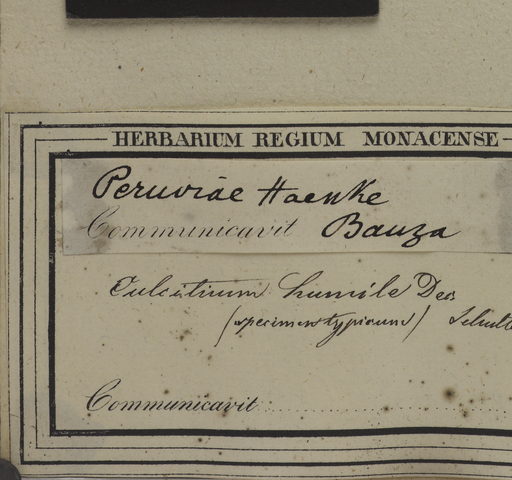 HERBARIUM REGIUM MONACENSE
Peruviae Haenke
Communicavit Bauza
Culcitium humile Des
(specimen typicum) Schult
Communicavit